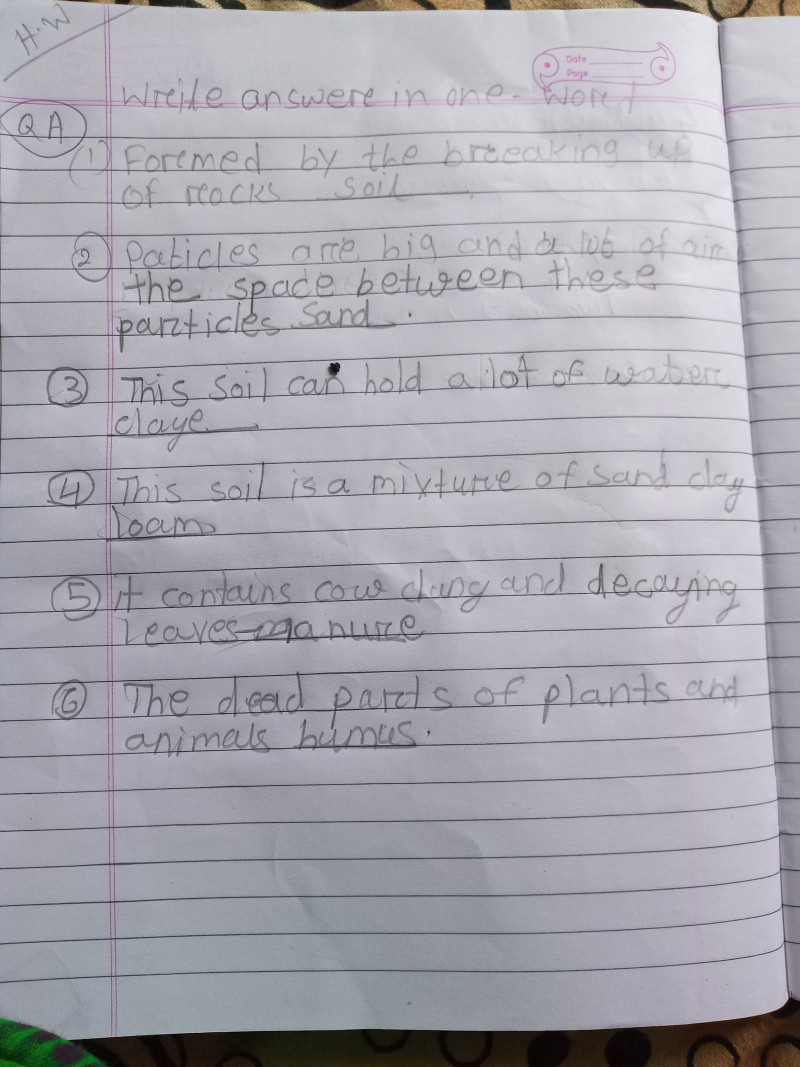 H.W
Date
Page
Wreite answere in one-Word
Q A
(1) Foremed by the breeaking up
of rocks soil .
2 Paticles are big and a lot of air
the space between these
particles Sand.
3 This soil can hold a lot of water
claye
4 This soil is a mixture of sand clay
loam
5 it contains cow dung and decaying
leaves manure
6 The dead parts of plants and
animals humus.